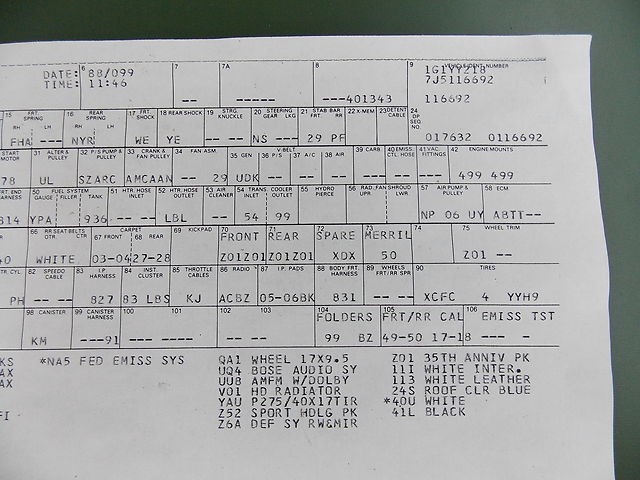 DATE: '88/099 6 7 7A 8 9 VEHICLE IDENT. NUMBER
1G1YY218
TIME: 11:46 7J5116692
-- ----- ---401343 116692
15 FRT. SPRING 16 REAR SPRING 17 FRT. SHOCK 18 REAR SHOCK 19 STRG. KNUCKLE 20 STEERING GEAR LKG 21 STAB BAR FRT. RR 22 X-MEM. 23 DETENT CABLE 24 DP SEQ NO
RH LH RH LH
FHA --- NYR WE YE -- -- NS --- 29 PF 017632 0116692
START MOTOR 31 ALTER & PULLEY 32 P/S PUMP & PULLEY 33 CRANK & FAN PULLEY 34 FAN ASM. V-BELT 35 GEN 36 P/S 37 A/C 38 AIR 39 CARB 40 EMISS. CTL HOSE 41 VAC. FITTINGS 42 ENGINE MOUNTS
78 UL SZARC AMCAAN -- 29 UDK -- -- 499 499
FRT. END HARNESS 50 FUEL SYSTEM GAUGE FILLER TANK 51 HTR. HOSE INLET 52 HTR. HOSE OUTLET 53 AIR CLEANER 54 TRANS. INLET COOLER OUTLET 55 HYDRO PIERCE 56 RAD. FAN SHROUD UPR. LWR. 57 AIR PUMP & PULLEY 58 ECM
814 YPA 936 -- -- LBL -- -- 54 99 NP 06 UY ABTT--
66 RR SEAT BELTS OTR CTR CARPET 67 FRONT 68 REAR 69 KICKPAD 70 FRONT 71 REAR 72 SPARE 73 MERRIL 74 75 WHEEL TRIM
40 WHITE 03-04 27-28 Z01Z01 Z01Z01 XDX 50 Z01 --
TR. CYL 82 SPEEDO CABLE 83 I.P. HARNESS 84 INST. CLUSTER 85 THROTTLE CABLES 86 RADIO 87 I.P. PADS 88 BODY FRT. HARNESS 89 WHEELS FRT/RR SPR 90 TIRES
PH -- -- 827 83 LBS KJ ACBZ 05-06BK 831 -- -- XCFC 4 YYH9
98 CANISTER 99 CANISTER HARNESS 100 101 102 103 104 FOLDERS 105 FRT/RR CAL 106 EMISS TST
KM ---91 --- ---- -- -- 99 BZ 49-50 17-18 --- -
KS *NA5 FED EMISS SYS QA1 WHEEL 17X9.5 Z01 35TH ANNIV PK
AX UQ4 BOSE AUDIO SY 11I WHITE INTER.
AX UU8 AMFM W/DOLBY 113 WHITE LEATHER
V01 HD RADIATOR 24S ROOF CLR BLUE
YAU P275/40X17TIR *40U WHITE
FI Z52 SPORT HDLG PK 41L BLACK
Z6A DEF SY RW&MIR